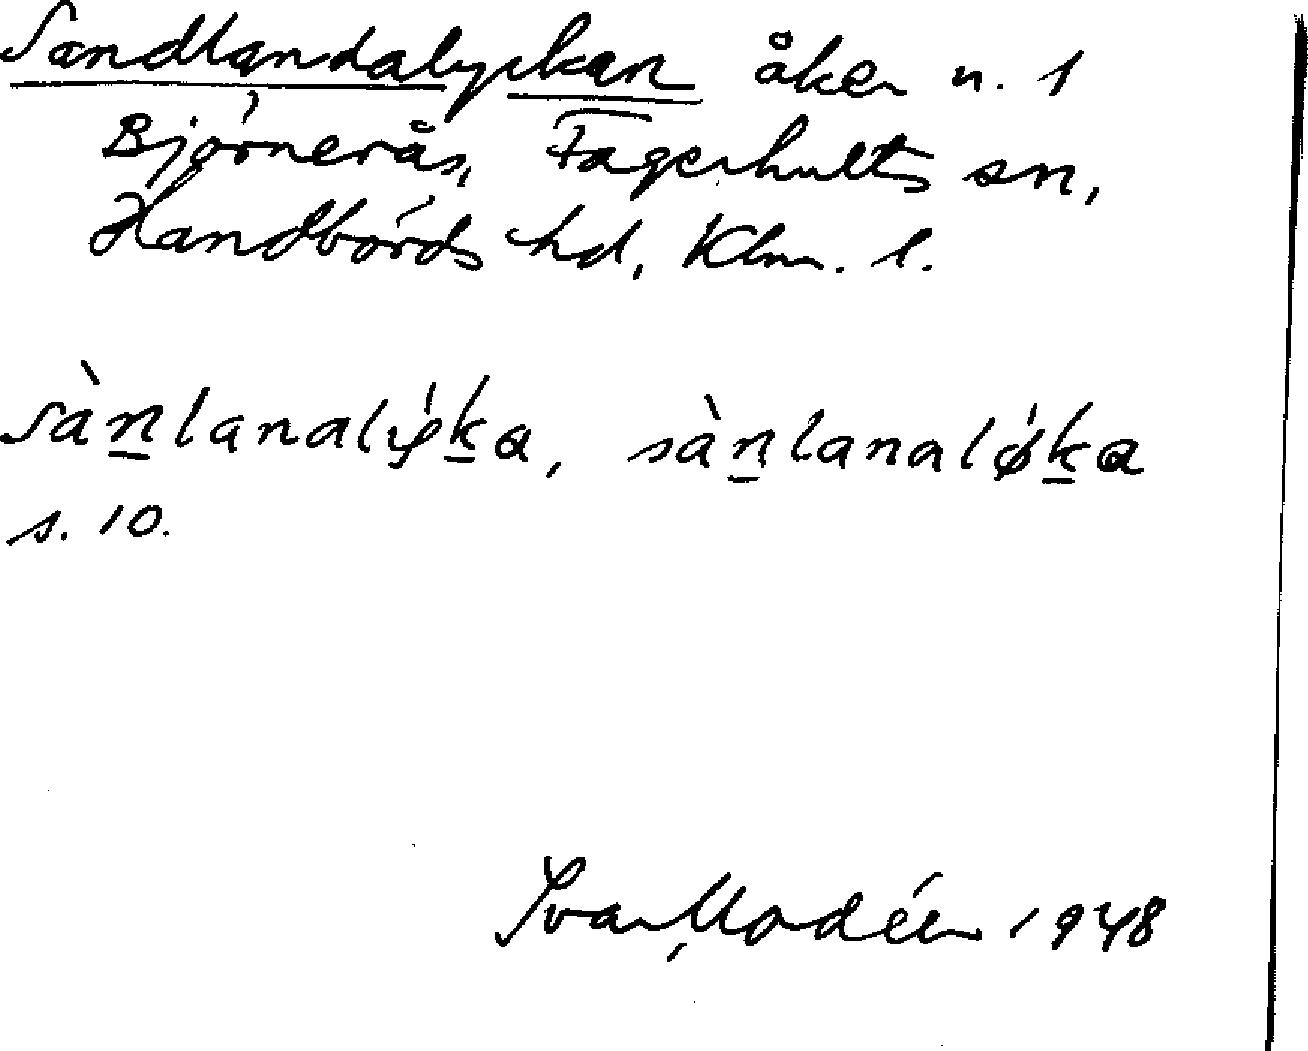 Sandlandalyckan åker n. 1
Björnerås, Fagerhults sn,
Handbörds hd, Klm. l.
sàn̲lanalǿ̨k̲a, sàn̲lanalǿk̲a
s. 10.
Ivar Modéer 1948